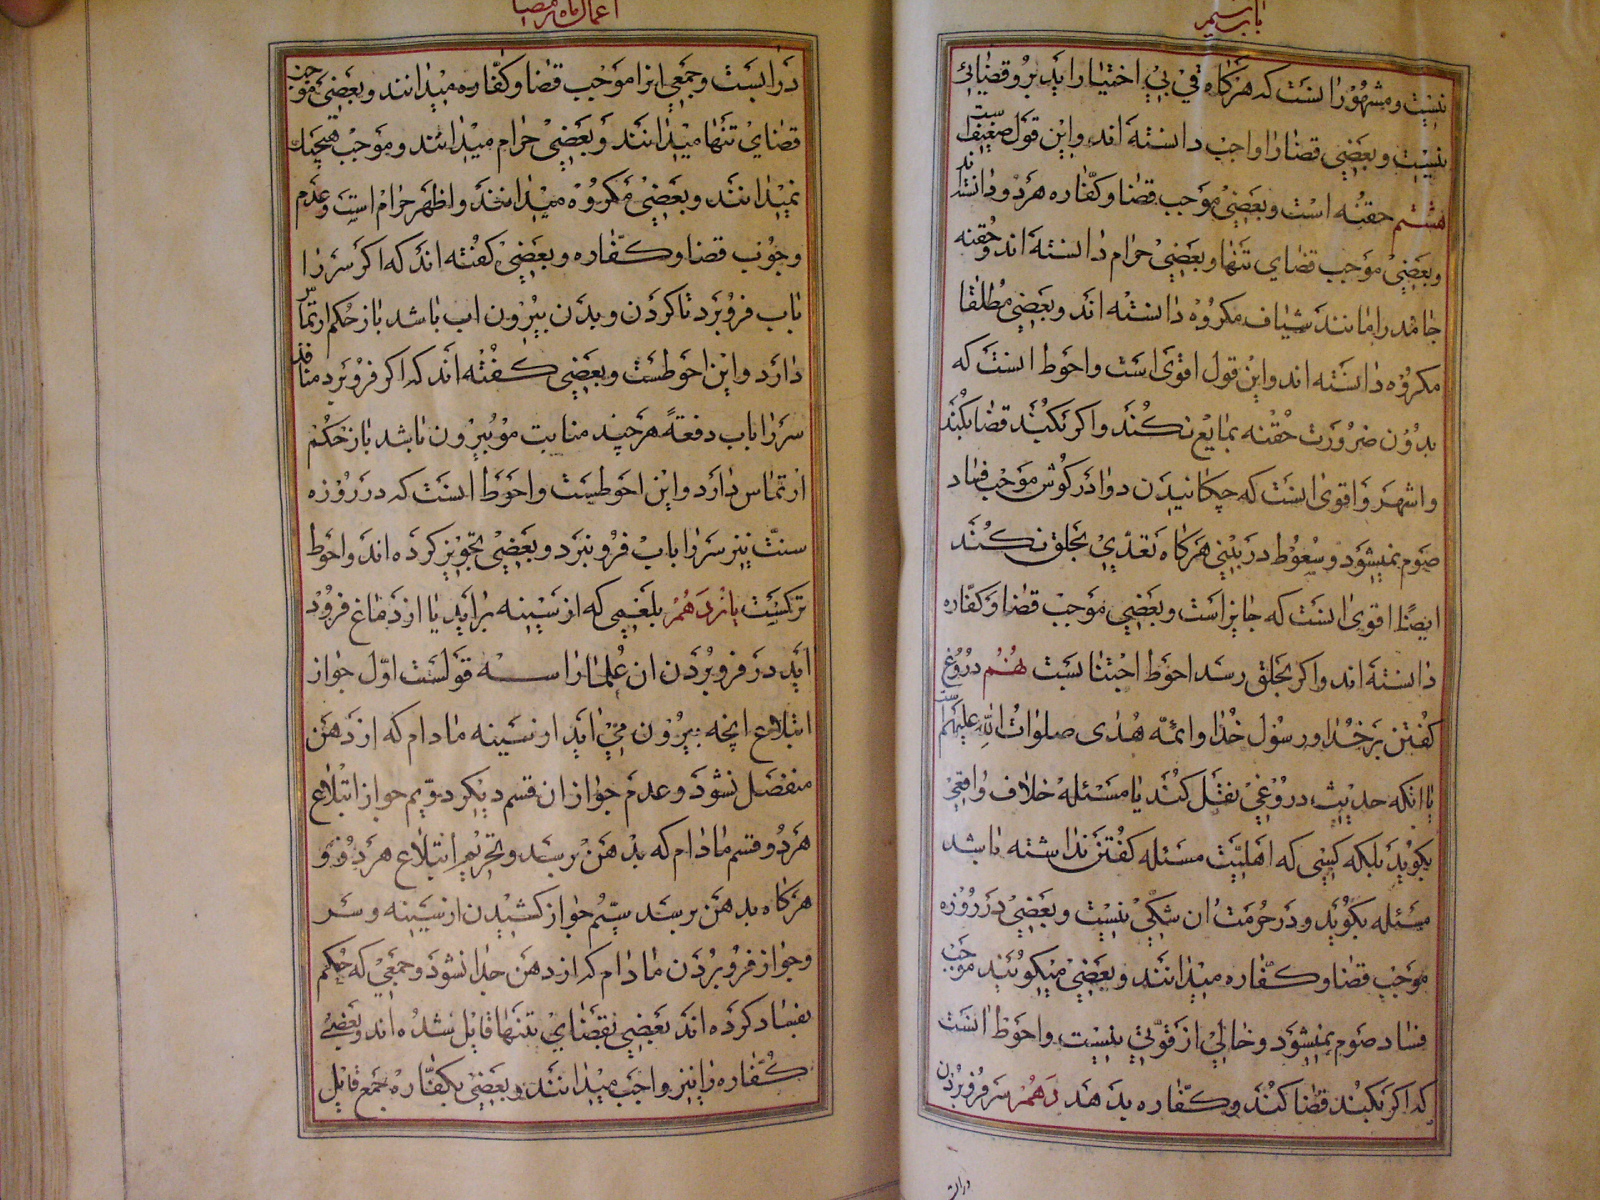 باب سیم
نیست و مشهور انست که هرکاه قی بی اختیار اید برو قضائی
نیست و بعضی قضا را واجب دانسته اند و این قول ضعیفست
هشتم حقنه است و بعضی موجب قضا و کفّاره هر دو دانسته‌اند
و بعضی موجب قضای تنها و بعضی حرام دانسته اند و حقنه
جامد را مانند شیاف مکروه دانسته اند و بعضی مطلقا
مکروه دانسته اند و این قول اقوی است و احوط انست که
بدون ضرورت حقنه بمایع نکند و اکر بکند قضا بکند
و اشهر و اقوی انست که چکانیدن دوا در کوش موجب فساد
صوم نمیشود و سعوط در بینی هرکاه تعدّی بحلق نکند
ایضًا اقوی انست که جایز است و بعضی موجب قضا و کفّاره
دانسته اند و اکر بحلق رسد احوط اجتنابست نهم دروغ
کفتن بر خدا و رسول خدا و ائمّه هدی صلوات الله علیهم است
یا انکه حدیث دروغی نقل کند یا مسئله خلاف واقعی
بکوید بلکه کسی که اهلیّت مسئله کفتن نداشته باشد
مسئله بکوید و در حرمت ان شکی نیست و بعضی در روزه
موجب قضا و کفّاره میدانند و بعضی میکویند موجب
فساد صوم نمیشود و خالی از قوّتی نیست و احوط انست
که اکر بکند قضا کند و کفّاره بدهد دهم سر فرو بردن
در اب
اعمال ماه رمضان
در ابست و جمعی انرا موجب قضا و کفّاره میدانند و بعضی موجب
قضای تنها میدانند و بعضی حرام میدانند و موجب هیچیك
نمیدانند و بعضی مکروه میدانند و اظهر حرام است و عدم
وجوب قضا و کفّاره و بعضی کفته اند که اکر سر را
باب فرو برد تا کردن و بدن بیرون اب باشد باز حکم ارتماس
دارد و این احوطست و بعضی کفته اند که اکر فرو برد منافذ
سر را باب دفعةً هر چند منابت مو بیرون باشد باز حکم
ارتماس دارد و این احوطست و احوط انست که در روزه
سنّت نیز سر را باب فرو نبرد و بعضی تجویز کرده اند و احوط
ترکست یازدهم بلغمی که از سینه براید یا از دماغ فرود
اید در فرو بردن ان علما را سه قولست اوّل جواز
ابتلاع انچه بیرون می اید از سینه مادام که از دهن
منفصل نشود و عدم جواز ان قسم دیکر دوّیم جواز ابتلاع
هر دو قسم مادام که بدهن نرسد و تحریم ابتلاع هر دو
هرکاه بدهن برسد سیّم جواز کشیدن از سینه و سر
و جواز فرو بردن مادام که از دهن جدا نشود و جمعی که حکم
بفساد کرده اند بعضی بقضای تنها قایل شده اند و بعضی
کفّاره را نیز واجب میدانند و بعضی بکفّاره جمع قایل